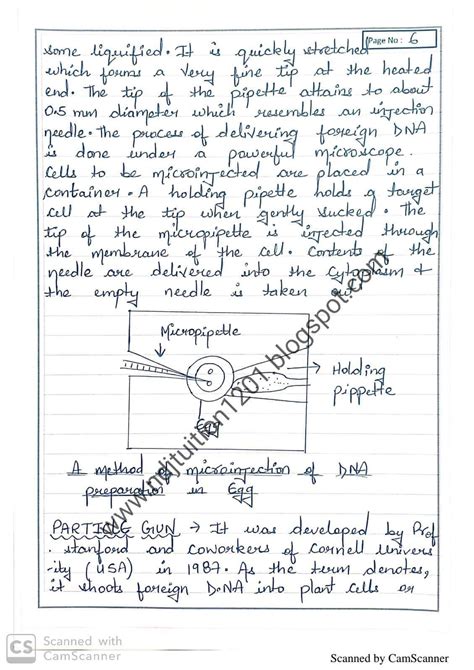 Page No : 6
some liquified. It is quickly stretched
which forms a very fine tip at the heated
end. The tip of the pipette attains to about
0.5 mm diameter which resembles an injection
needle. The process of delivering foreign DNA
is done under a powerful microscope.
Cells to be microinjected are placed in a
container. A holding pipette holds a target
cell at the tip when gently sucked. The
tip of the micropipette is injected through
the membrane of the cell. Contents of the
needle are delivered into the cytoplasm &
the empty needle is taken out.
www.njjtuition1201.blogspot.com
Micropipette
Holding
pippette
Egg
A method of microinjection of DNA
preparation in Egg
PARTICLE GUN → It was developed by Prof
. stanford and coworkers of Cornell Univers
-ity (USA) in 1987. As the term denotes,
it shoots foreign D.NA into plant cells or
CS Scanned with
CamScanner
Scanned by CamScanner